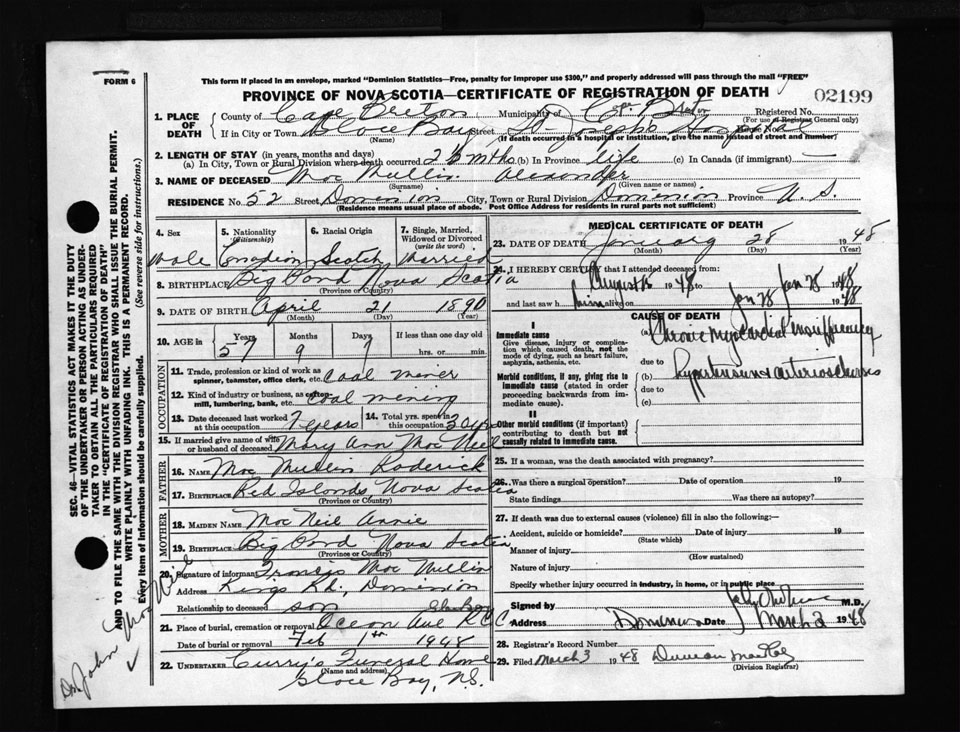 FORM 6
This form if placed in an envelope, marked "Dominion Statistics—Free, penalty for improper use $300," and properly addressed will pass through the mail "FREE"
PROVINCE OF NOVA SCOTIA—CERTIFICATE OF REGISTRATION OF DEATH
02199
1. PLACE OF DEATH
County of Cape Breton Municipality of Cape Breton Registered No.
(For use of Registrar General only)
If in City or Town Glace Bay Street St. Joseph's Hospital
(Name) (If death occurred in a hospital or institution, give the name instead of street and number)
2. LENGTH OF STAY (in years, months and days)
(a) In City, Town or Rural Division where death occurred 2 ½ mths (b) In Province life (c) In Canada (if immigrant) —
3. NAME OF DECEASED Mac Mullin Alexander
(Surname) (Given name or names)
RESIDENCE No. 52 Street Dominion City, Town or Rural Division Dominion Province N.S.
(Residence means usual place of abode. Post Office Address for residents in rural parts not sufficient)
4. Sex 5. Nationality (Citizenship) 6. Racial Origin 7. Single, Married, Widowed or Divorced (write the word)
Male Canadian Scotch Married
8. BIRTHPLACE Big Pond Nova Scotia
(Province or Country)
9. DATE OF BIRTH April 21 1890
(Month) (Day) (Year)
10. AGE in Years Months Days If less than one day old
57 9 7 hrs. or min.
OCCUPATION
11. Trade, profession or kind of work as spinner, teamster, office clerk, etc. Coal miner
12. Kind of industry or business, as cotton-mill, lumbering, bank, etc. Coal mining
13. Date deceased last worked at this occupation 7 years 14. Total yrs. spent in this occupation 30 yrs
15. If married give name of wife or husband of deceased Mary Ann Mac Neil
FATHER
16. NAME Mac Mullin Roderick
17. BIRTHPLACE Red Islands Nova Scotia
(Province or Country)
MOTHER
18. MAIDEN NAME Mac Neil Annie
19. BIRTHPLACE Big Pond Nova Scotia
(Province or Country)
20. Signature of informant Francis Mac Mullin
Address Kings Rd., Dominion
Relationship to deceased son
21. Place of burial, cremation or removal Ocean Ave R.C.C. Glace Bay
Date of burial or removal Feb 1st 1948
22. UNDERTAKER Curry's Funeral Home
(Name and address)
Glace Bay, N.S.
MEDICAL CERTIFICATE OF DEATH
23. DATE OF DEATH January 28 1948
(Month) (Day) (Year)
24. I HEREBY CERTIFY that I attended deceased from:
August 15 1947 to Jan 28 1948
and last saw him alive on Jan 28 1948
CAUSE OF DEATH
I
Immediate cause
Give disease, injury or complication which caused death, not the mode of dying, such as heart failure, asphyxia, asthenia, etc.
(a) Chronic Myocardial insufficiency
due to
Morbid conditions, if any, giving rise to immediate cause (stated in order proceeding backwards from immediate cause).
(b) hypertension & arteriosclerosis
due to
(c)
II
Other morbid conditions (if important) contributing to death but not causally related to immediate cause.
25. If a woman, was the death associated with pregnancy?
26. Was there a surgical operation? Date of operation 19
State findings Was there an autopsy?
27. If death was due to external causes (violence) fill in also the following:—
Accident, suicide or homicide? Date of injury 19
(State which)
Manner of injury
(How sustained)
Nature of injury
Specify whether injury occurred in industry, in home, or in public place
Signed by M.D.
Address Dominion Date March 2 1948
28. Registrar's Record Number
29. Filed March 3 1948 Duncan
(Division Registrar)
SEC. 46—VITAL STATISTICS ACT MAKES IT THE DUTY
OF THE UNDERTAKER OR PERSON ACTING AS UNDERTAKER TO OBTAIN ALL THE PARTICULARS REQUIRED
IN THE "CERTIFICATE OF REGISTRATION OF DEATH"
AND TO FILE THE SAME WITH THE DIVISION REGISTRAR WHO SHALL ISSUE THE BURIAL PERMIT.
WRITE PLAINLY WITH UNFADING INK. THIS IS A PERMANENT RECORD.
Every item of Information should be carefully supplied. (See reverse side for instructions.)
Dr. John MacNeil